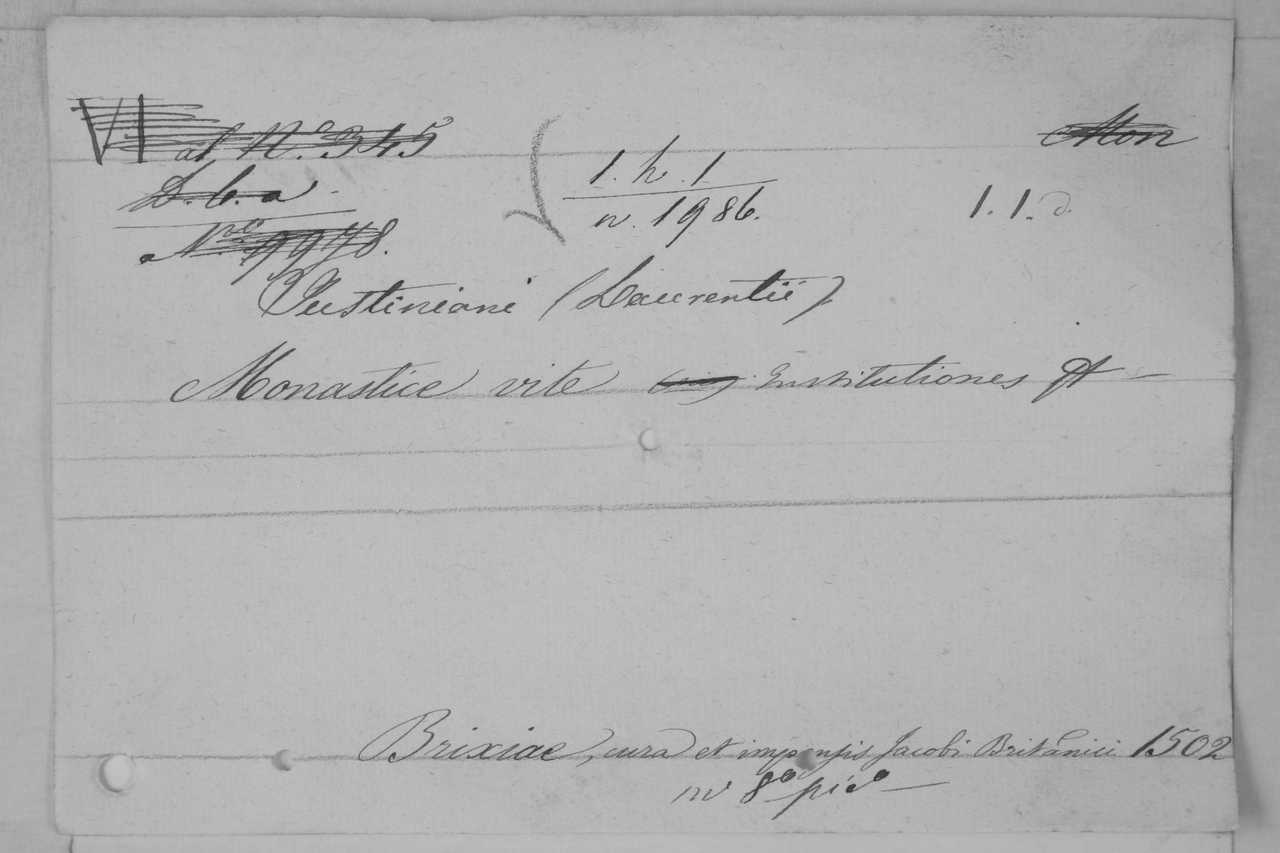 VI al N.º 345
Mon
D. b. a
1. h. 1
1. 1. d.
n. 1986.
Justiniani (Laurentii)
Monastice vite Institutiones
Brixiae, cura et impensis Jacobi Britanici 1502
in 8º picº